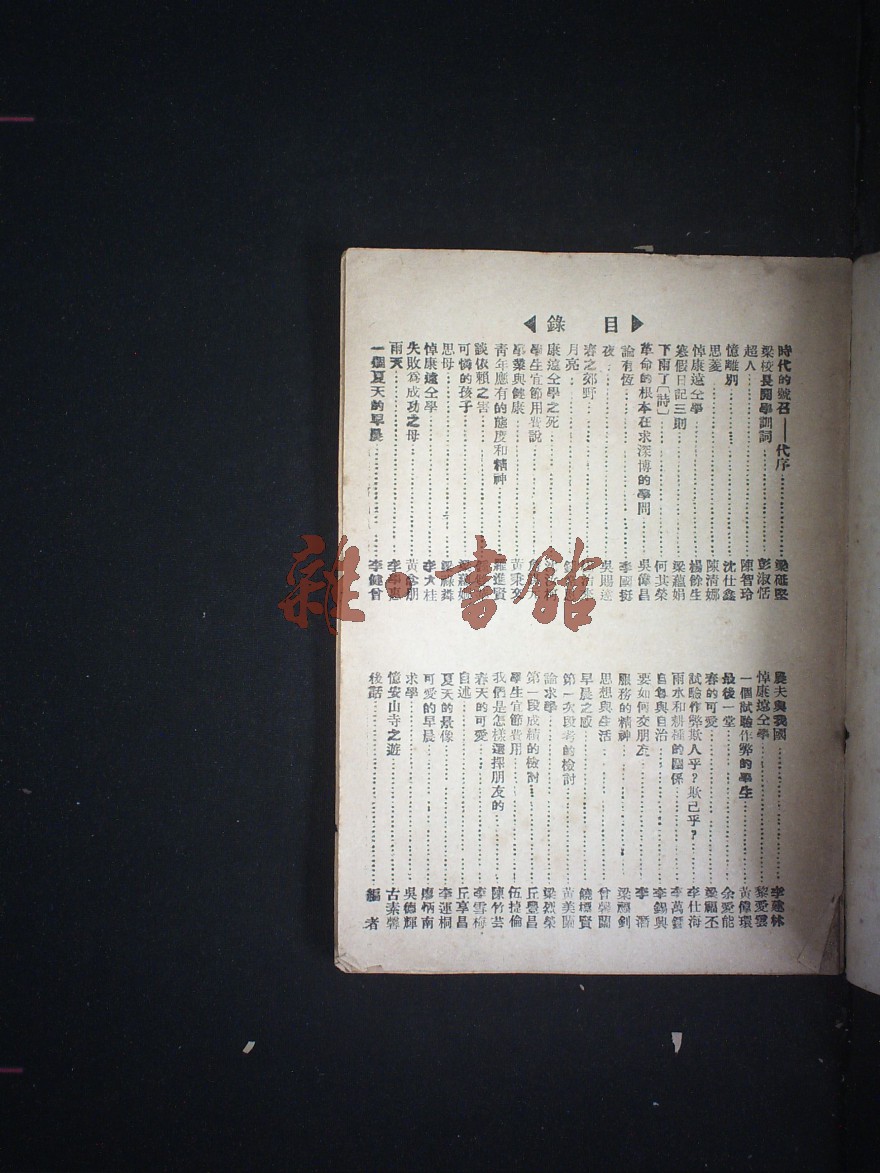 目錄
時代的號召——代序 梁砥堅
梁校長開學訓詞 彭淑恬
超人 陳智玲
憶離別 沈仕鑫
思菱 陳清娜
悼康遠仝學 楊餘生
寒假日記三則 梁蘊娟
下雨了〔詩〕 何其榮
革命的根本在求深博的學問 吳偉昌
論有恆 李國挺
夜 吳賜達
春之郊野
月亮
康遠仝學之死
學生宜節用費說
學業與健康 黃秉
青年應有的態度和精神 羅進賢
談依賴之害
可憐的孩子 梁蘊
思母 梁祿
悼康遠仝學 李大桂
失敗爲成功之母 黃念朋
雨天 李學
一個夏天的早晨 李健曾
農夫與我國 李建林
悼康遠仝學 黎愛雲
一個試驗作弊的學生 黃偉環
最後一堂 余愛能
春的可愛 梁福丕
試驗作弊欺人乎？欺己乎？ 李仕海
雨水和耕種的關係 李萬
自息與自治 李錫興
要如何交朋友 李潛
服務的精神 梁福釗
思想與生活 曾馨蘭
早晨之感 饒煙賢
第一次段考的檢討 黃美蘭
論求學 梁烈榮
第一段成績的檢討 丘豐昌
學生宜節費用 伍捷倫
我們是怎樣選擇朋友的 陳竹芸
春天的可愛 李雪梅
自述 丘享昌
夏天的景像 李運桐
可愛的早晨 廖炳南
求學 吳德輝
憶安山寺之遊 古素馨
後話 編者
雜·書館